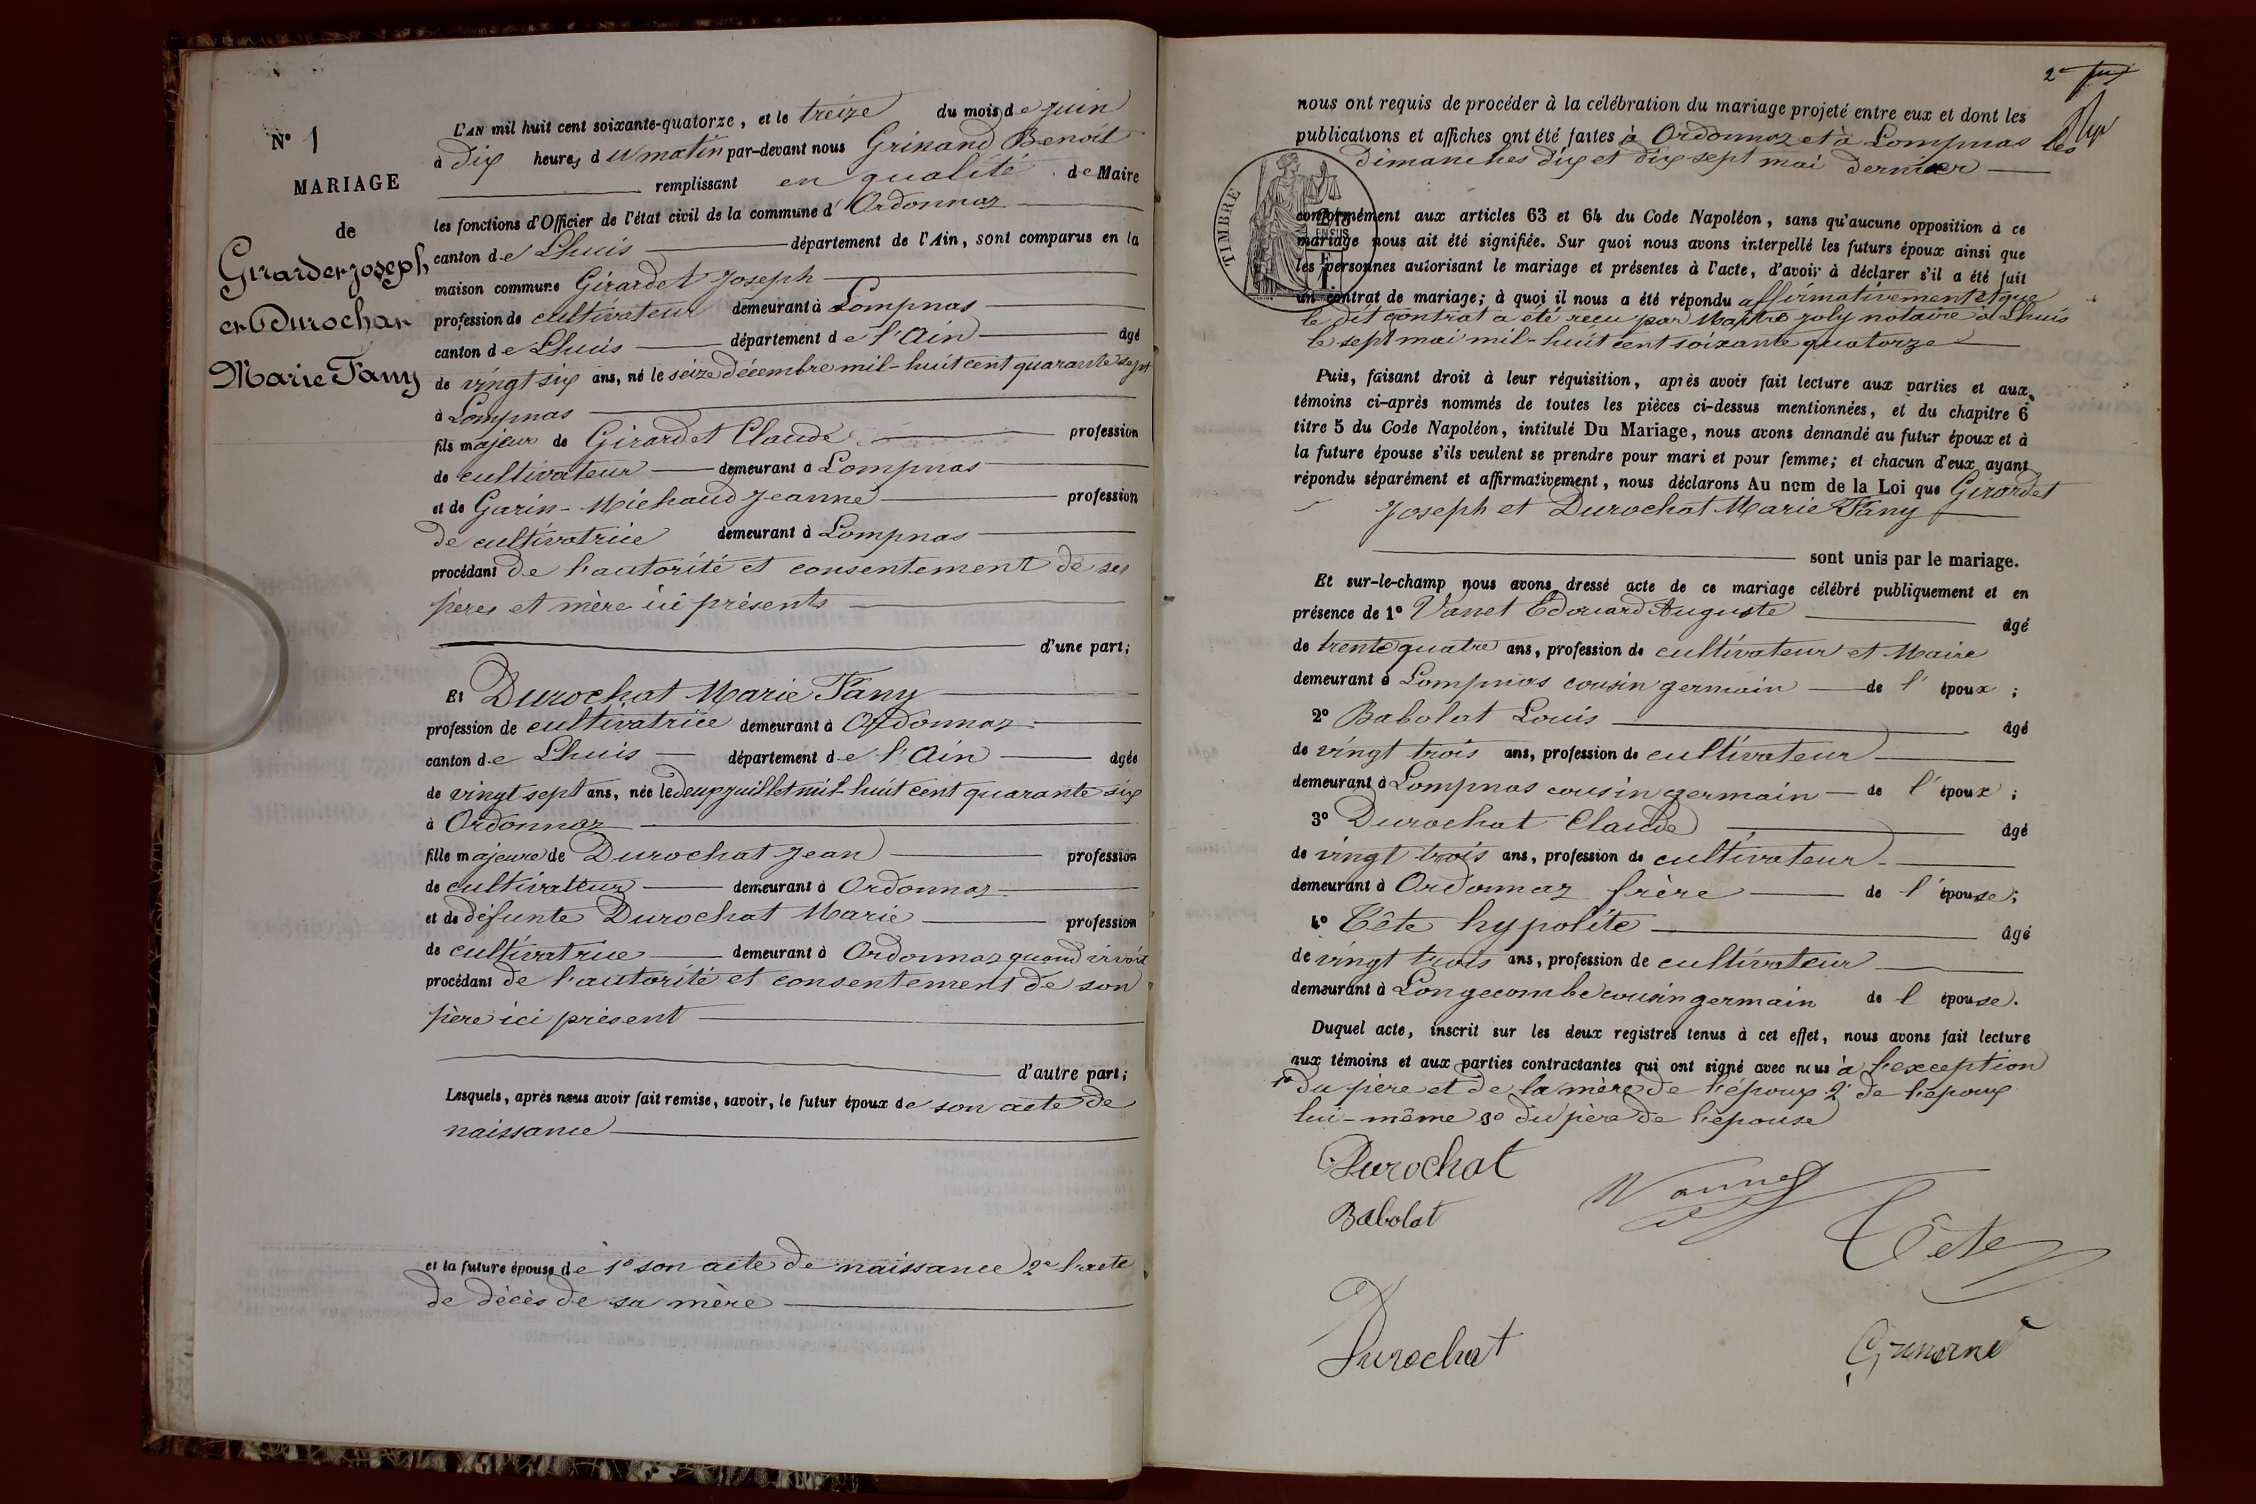 N° 1
MARIAGE
de
Girardet Joseph
et Durochat
Marie Fany
L'AN mil huit cent soixante-quatorze, et le treize du mois de juin
à dix heures du matin par-devant nous Grinand Benoît
remplissant en qualité de Maire
les fonctions d'Officier de l'état civil de la commune d'Ordonnaz
canton de Lhuis département de l'Ain, sont comparus en la
maison commune Girardet Joseph
profession de cultivateur demeurant à Lompnas
canton de Lhuis département de l'Ain âgé
de vingt six ans, né le seize décembre mil-huit cent quarante sept
à Lompnas
fils majeur de Girardet Claude profession
de cultivateur demeurant à Lompnas
et de Garin-Michaud Jeanne profession
de cultivatrice demeurant à Lompnas
procédant de l'autorité et consentement de ses
pères et mère ici présents
d'une part;
Et Durochat Marie Fany
profession de cultivatrice demeurant à Ordonnaz
canton de Lhuis département de l'Ain âgée
de vingt sept ans, née le deux juillet mil huit cent quarante six
à Ordonnaz
fille majeure de Durochat Jean profession
de cultivateur demeurant à Ordonnaz
et de défunte Durochat Marie profession
de cultivatrice demeurant à Ordonnaz quand vivait
procédant de l'autorité et consentement de son
père ici présent
d'autre part;
Lesquels, après nous avoir fait remise, savoir, le futur époux de son acte de
naissance
et la future épouse de 1° son acte de naissance 2° l'acte
de décès de sa mère
nous ont requis de procéder à la célébration du mariage projeté entre eux et dont les
publications et affiches ont été faites à Ordonnaz et à Lompnas les
dimanches dix et dix sept mai dernier
TIMBRE
conformément aux articles 63 et 64 du Code Napoléon, sans qu'aucune opposition à ce
mariage nous ait été signifiée. Sur quoi nous avons interpellé les futurs époux ainsi que
les personnes autorisant le mariage et présentes à l'acte, d'avoir à déclarer s'il a été fait
un contrat de mariage; à quoi il nous a été répondu affirmativement et que
le dit contrat a été reçu par Maître Joly notaire à Lhuis
le sept mai mil-huit cent soixante quatorze
Puis, faisant droit à leur réquisition, après avoir fait lecture aux parties et aux
témoins ci-après nommés de toutes les pièces ci-dessus mentionnées, et du chapitre 6
titre 5 du Code Napoléon, intitulé Du Mariage, nous avons demandé au futur époux et à
la future épouse s'ils veulent se prendre pour mari et pour femme; et chacun d'eux ayant
répondu séparément et affirmativement, nous déclarons Au nom de la Loi que Girardet
Joseph et Durochat Marie Fany
sont unis par le mariage.
Et sur-le-champ nous avons dressé acte de ce mariage célébré publiquement et en
présence de 1° Vanet Edouard Auguste âgé
de trente quatre ans, profession de cultivateur et Maire
demeurant à Lompnas cousin germain de l'époux;
2° Babolat Louis âgé
de vingt trois ans, profession de cultivateur
demeurant à Lompnas cousin germain de l'époux;
3° Durochat Claude âgé
de vingt trois ans, profession de cultivateur
demeurant à Ordonnaz frère de l'épouse;
4° Tête hypolite âgé
de vingt trois ans, profession de cultivateur
demeurant à Longecombe cousin germain de l épouse.
Duquel acte, inscrit sur les deux registres tenus à cet effet, nous avons fait lecture
aux témoins et aux parties contractantes qui ont signé avec nous à l'exception
1° du père et de la mère de l'époux 2° de l'époux
lui-même 3° du père de l'épouse
Durochat
Babolat
Tête
Durochat